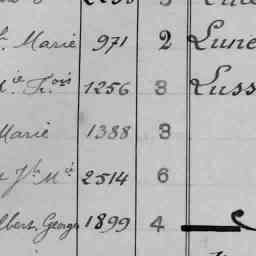 Marie 971 2 Lune
ie Frois 1256 3 Luss
Marie 1388 3
Jh Mie 2514 6
lbert, George 1899 4